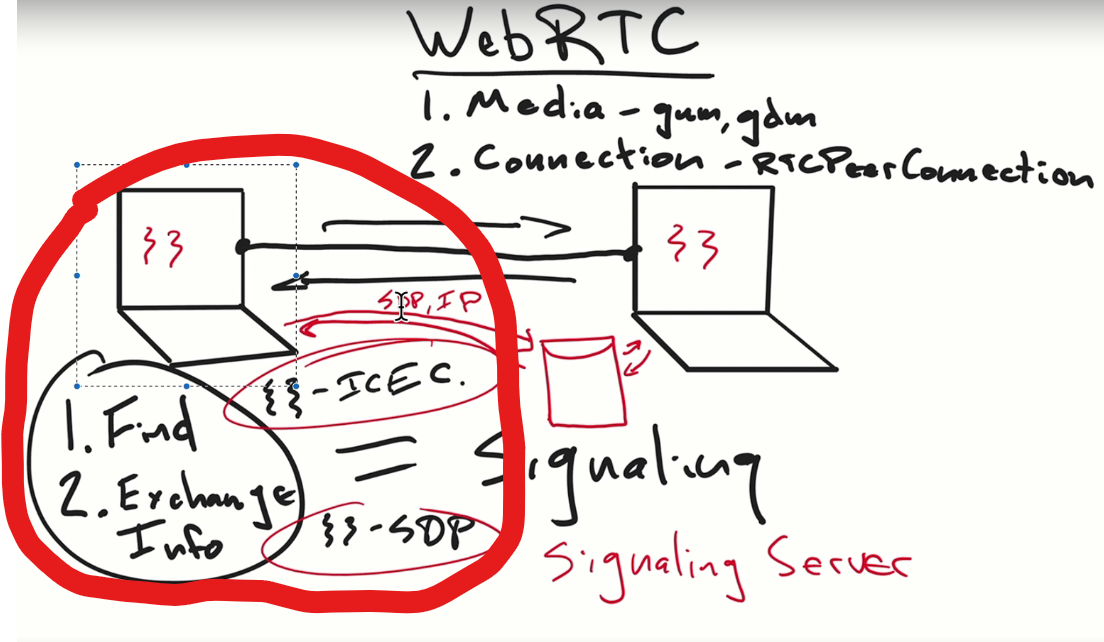 WebRTC
1. Media - gum, gdm
2. Connection - RTCPeerConnection
{} {}
SDP, IP
{} - ICEC.
1. Find
2. Exchange
Info
= Signaling
{} - SDP
Signaling Server